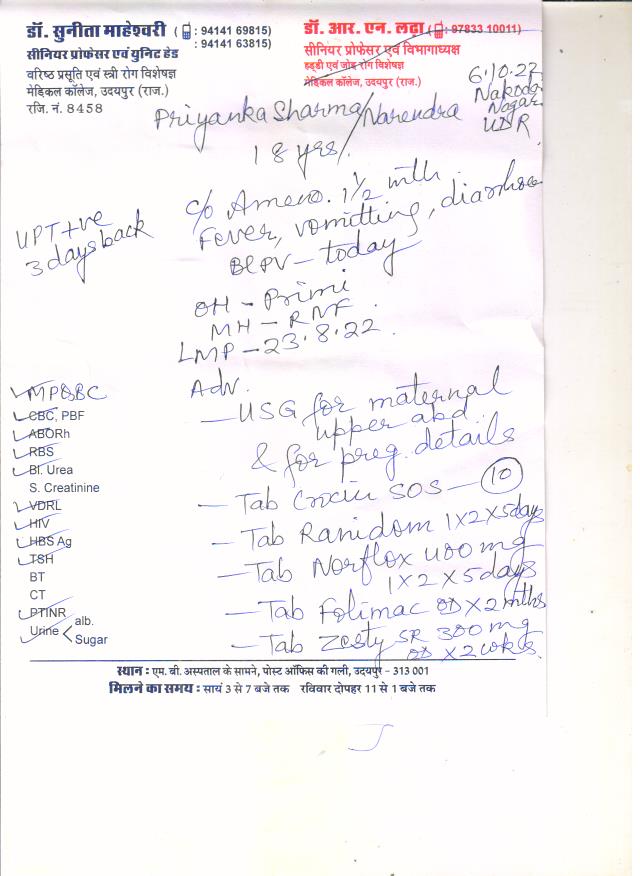 डॉ. सुनीता माहेश्वरी ( : 94141 69815)
: 94141 63815)
सीनियर प्रोफेसर एवं यूनिट हेड
वरिष्ठ प्रसूति एवं स्त्री रोग विशेषज्ञ
मेडिकल कॉलेज, उदयपुर (राज.)
रजि. नं. 8458
डॉ. आर. एन. लढ़ा ( : 97833 10011)
सीनियर प्रोफेसर एवं विभागाध्यक्ष
हड्डी एवं जोड़ रोग विशेषज्ञ
मेडिकल कॉलेज, उदयपुर (राज.)
6.10.22
Nakoda
Nagar
UDR
Priyanka Sharma/Narendra
18 yrs/
UPT +ve
3 days back
c/o Ameno. 1½ mth
Fever, vomitting, diarrhoea
BLPV - today
OH - Primi
MH - RNF
LMP - 23.8.22
MP&BC
CBC, PBF
ABORh
RBS
Bl. Urea
S. Creatinine
VDRL
HIV
HBS Ag
TSH
BT
CT
PTINR
Urine < alb.
Sugar
Adv.
- USG for maternal
upper abd.
& for preg. details
- Tab Crocin SOS - 10
- Tab Ranidom 1x2x5days
- Tab Norflox 400 mg
1x2x5days
- Tab Folimac OD x 2 mths
- Tab Zesty SR 300 mg
OD x 2 wks.
स्थान : एम. बी. अस्पताल के सामने, पोस्ट ऑफिस की गली, उदयपुर - 313 001
मिलने का समय : सायं 3 से 7 बजे तक रविवार दोपहर 11 से 1 बजे तक